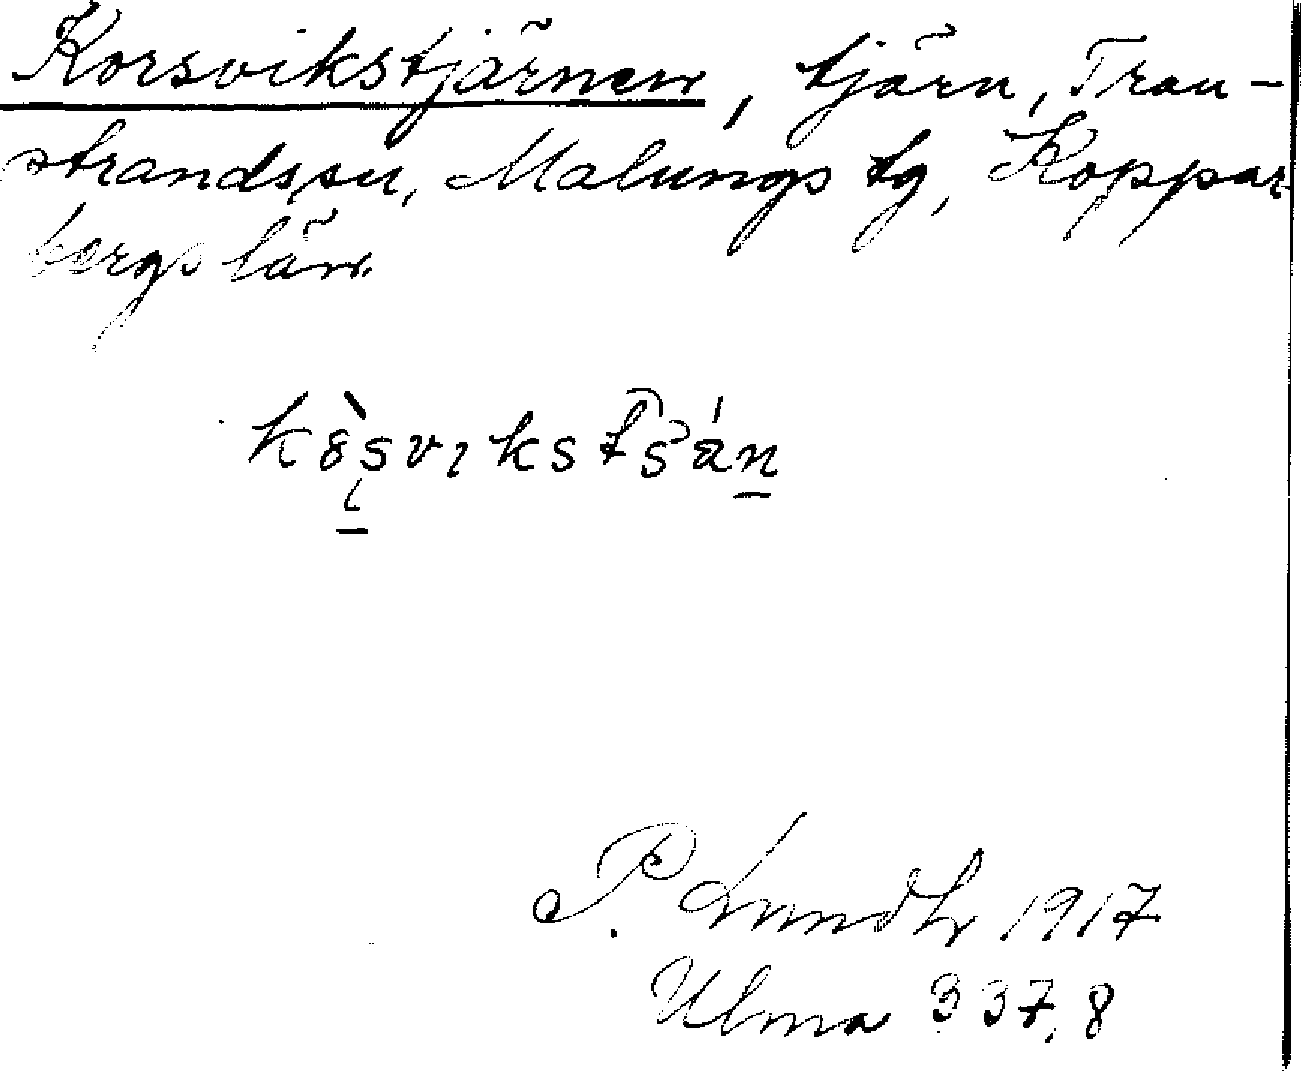 Korsvikstjärnen, tjärn, Tran-
strands sn, Malungs tg, Koppar-
bergs län.
P. Lundh 1917
Ulma 337,8